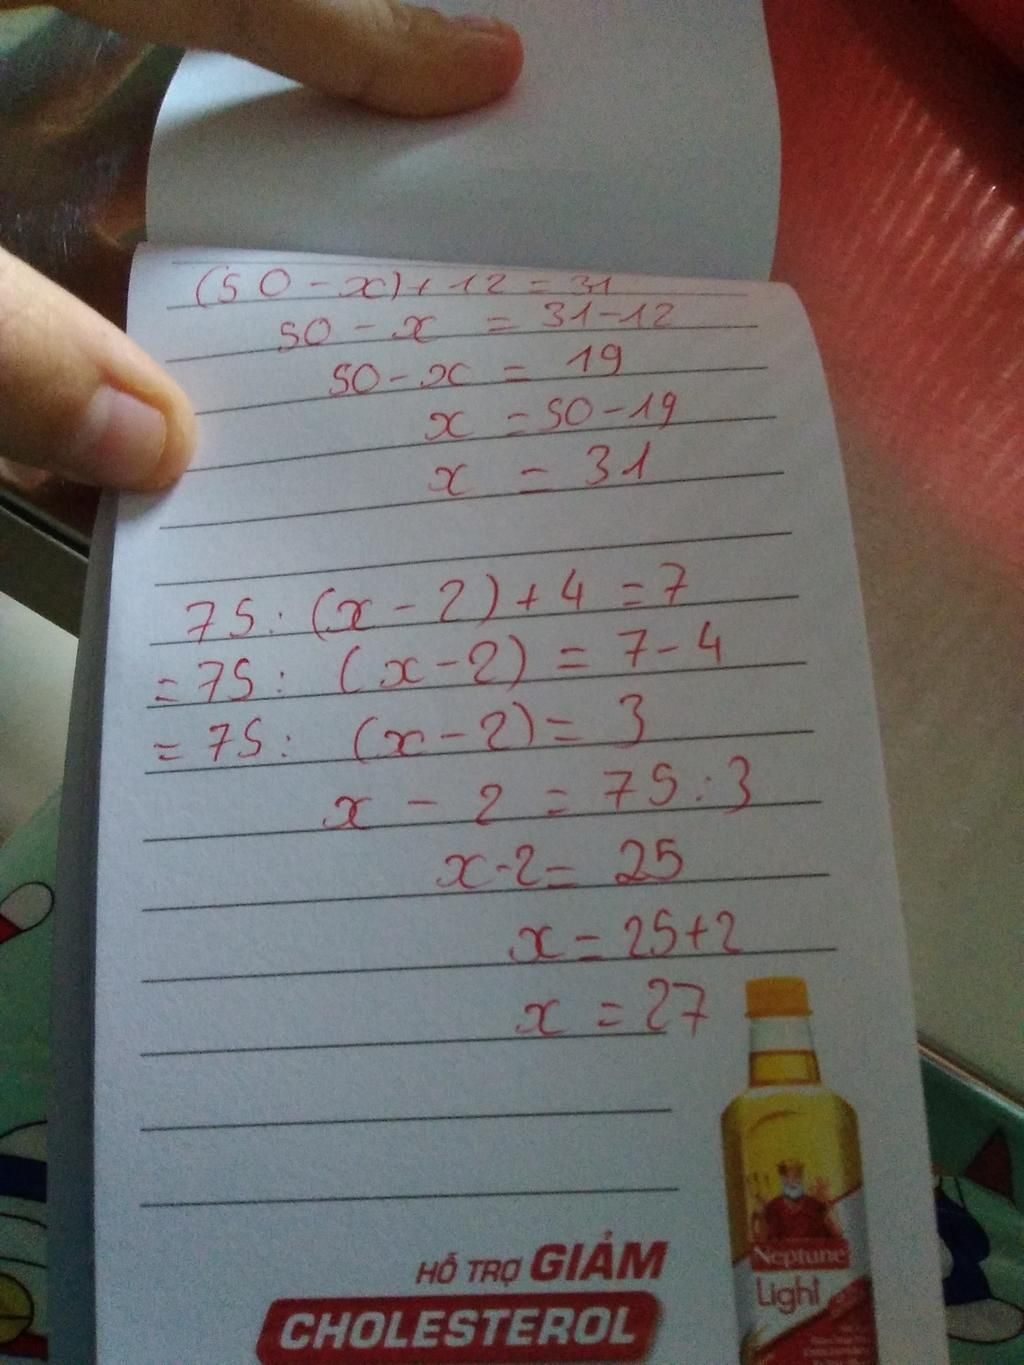 (50 - x) + 12 = 31
50 - x = 31-12
50 - x = 19
x = 50 - 19
x = 31
75 : (x - 2) + 4 = 7
= 75 : (x - 2) = 7 - 4
= 75 : (x - 2) = 3
x - 2 = 75 : 3
x - 2 = 25
x = 25 + 2
x = 27
HỖ TRỢ GIẢM
CHOLESTEROL
Neptune
Light